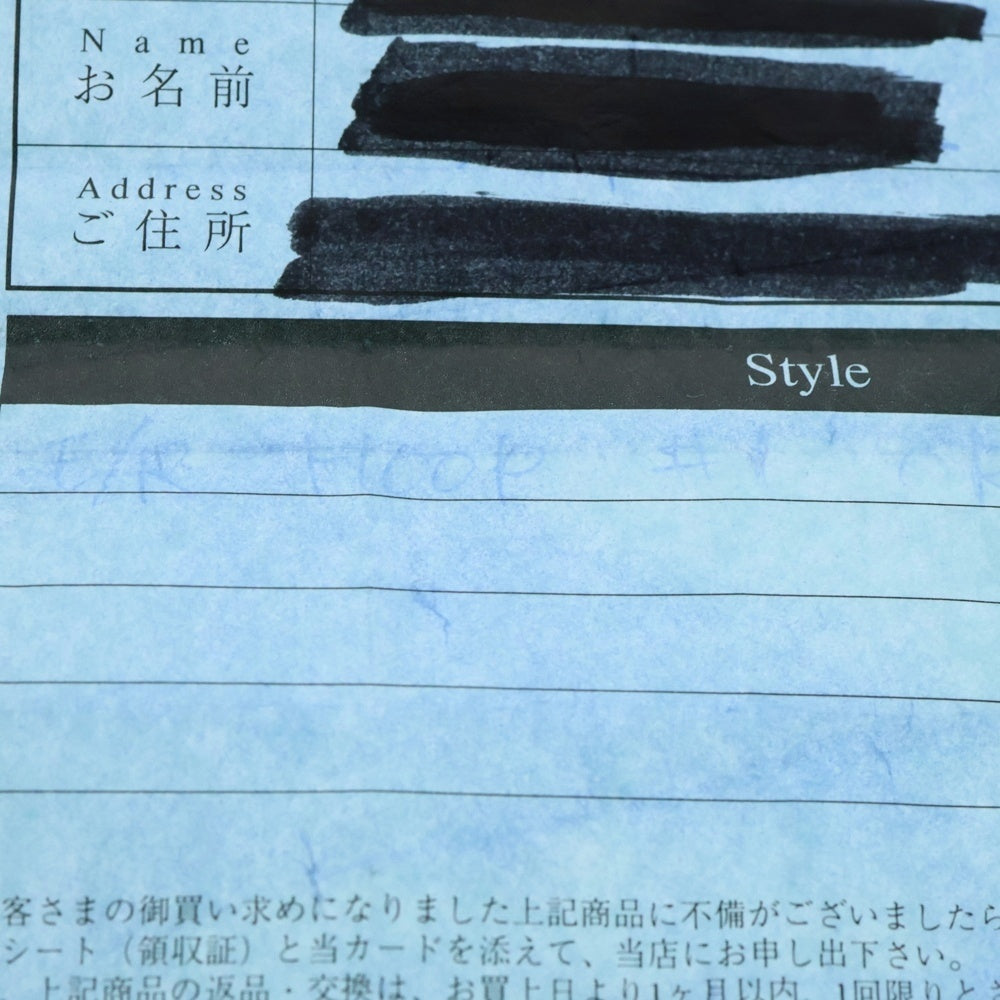 Name
お名前
Address
ご住所
Style
E/R Hoop #1
客さまの御買い求めになりました上記商品に不備がございましたら
シート（領収証）と当カードを添えて、当店にお申し出下さい。
上記商品の返品・交換は、お買上日より1ヶ月以内、1回限りと